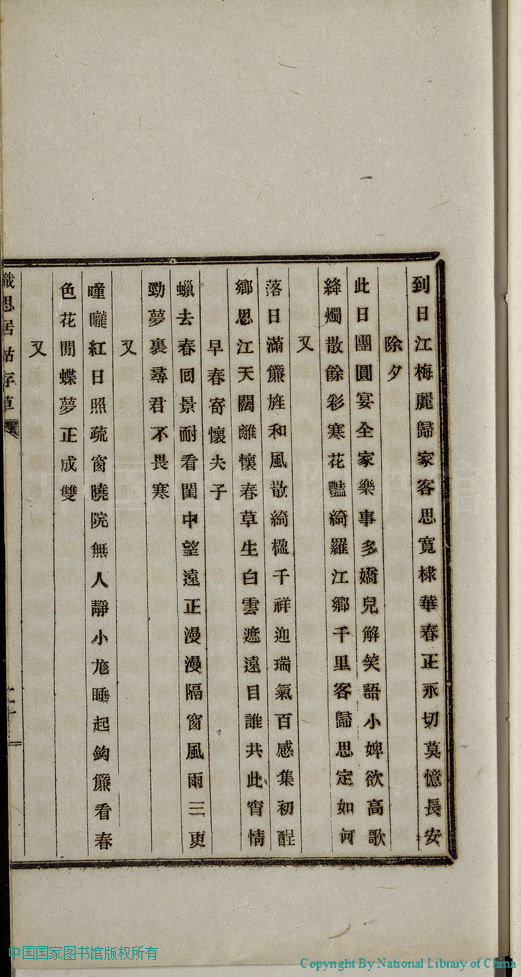 到日江梅麗歸家客思寬棣華春正永切莫憶長安
除夕
此日團圓宴全家樂事多嬌兒解笑語小婢欲高歌
絳燭散餘彩寒花豔綺羅江鄉千里客歸思定如何
又
落日滿簾旌和風散綺櫳千祥迎瑞氣百感集初酲
鄉思江天闊離懷春草生白雲遮遠目誰共此宵情
早春寄懷夫子
蠟去春回景耐看閨中望遠正漫漫隔窗風雨三更
勁夢裏尋君不畏寒
又
曈曨紅日照疏窗曉院無人靜小尨睡起鈎簾看春
色花閒蝶夢正成雙
又
織思居
存草
中国国家图书馆版权所有
Copyright By National Library of China